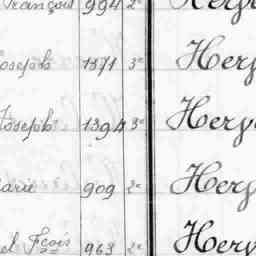 François 994 2e Herp
Joseph 1371 3e Herp
Joseph 1394 3e Herp
Marie 909 2e Herp
el Fçois 963 2e Herp